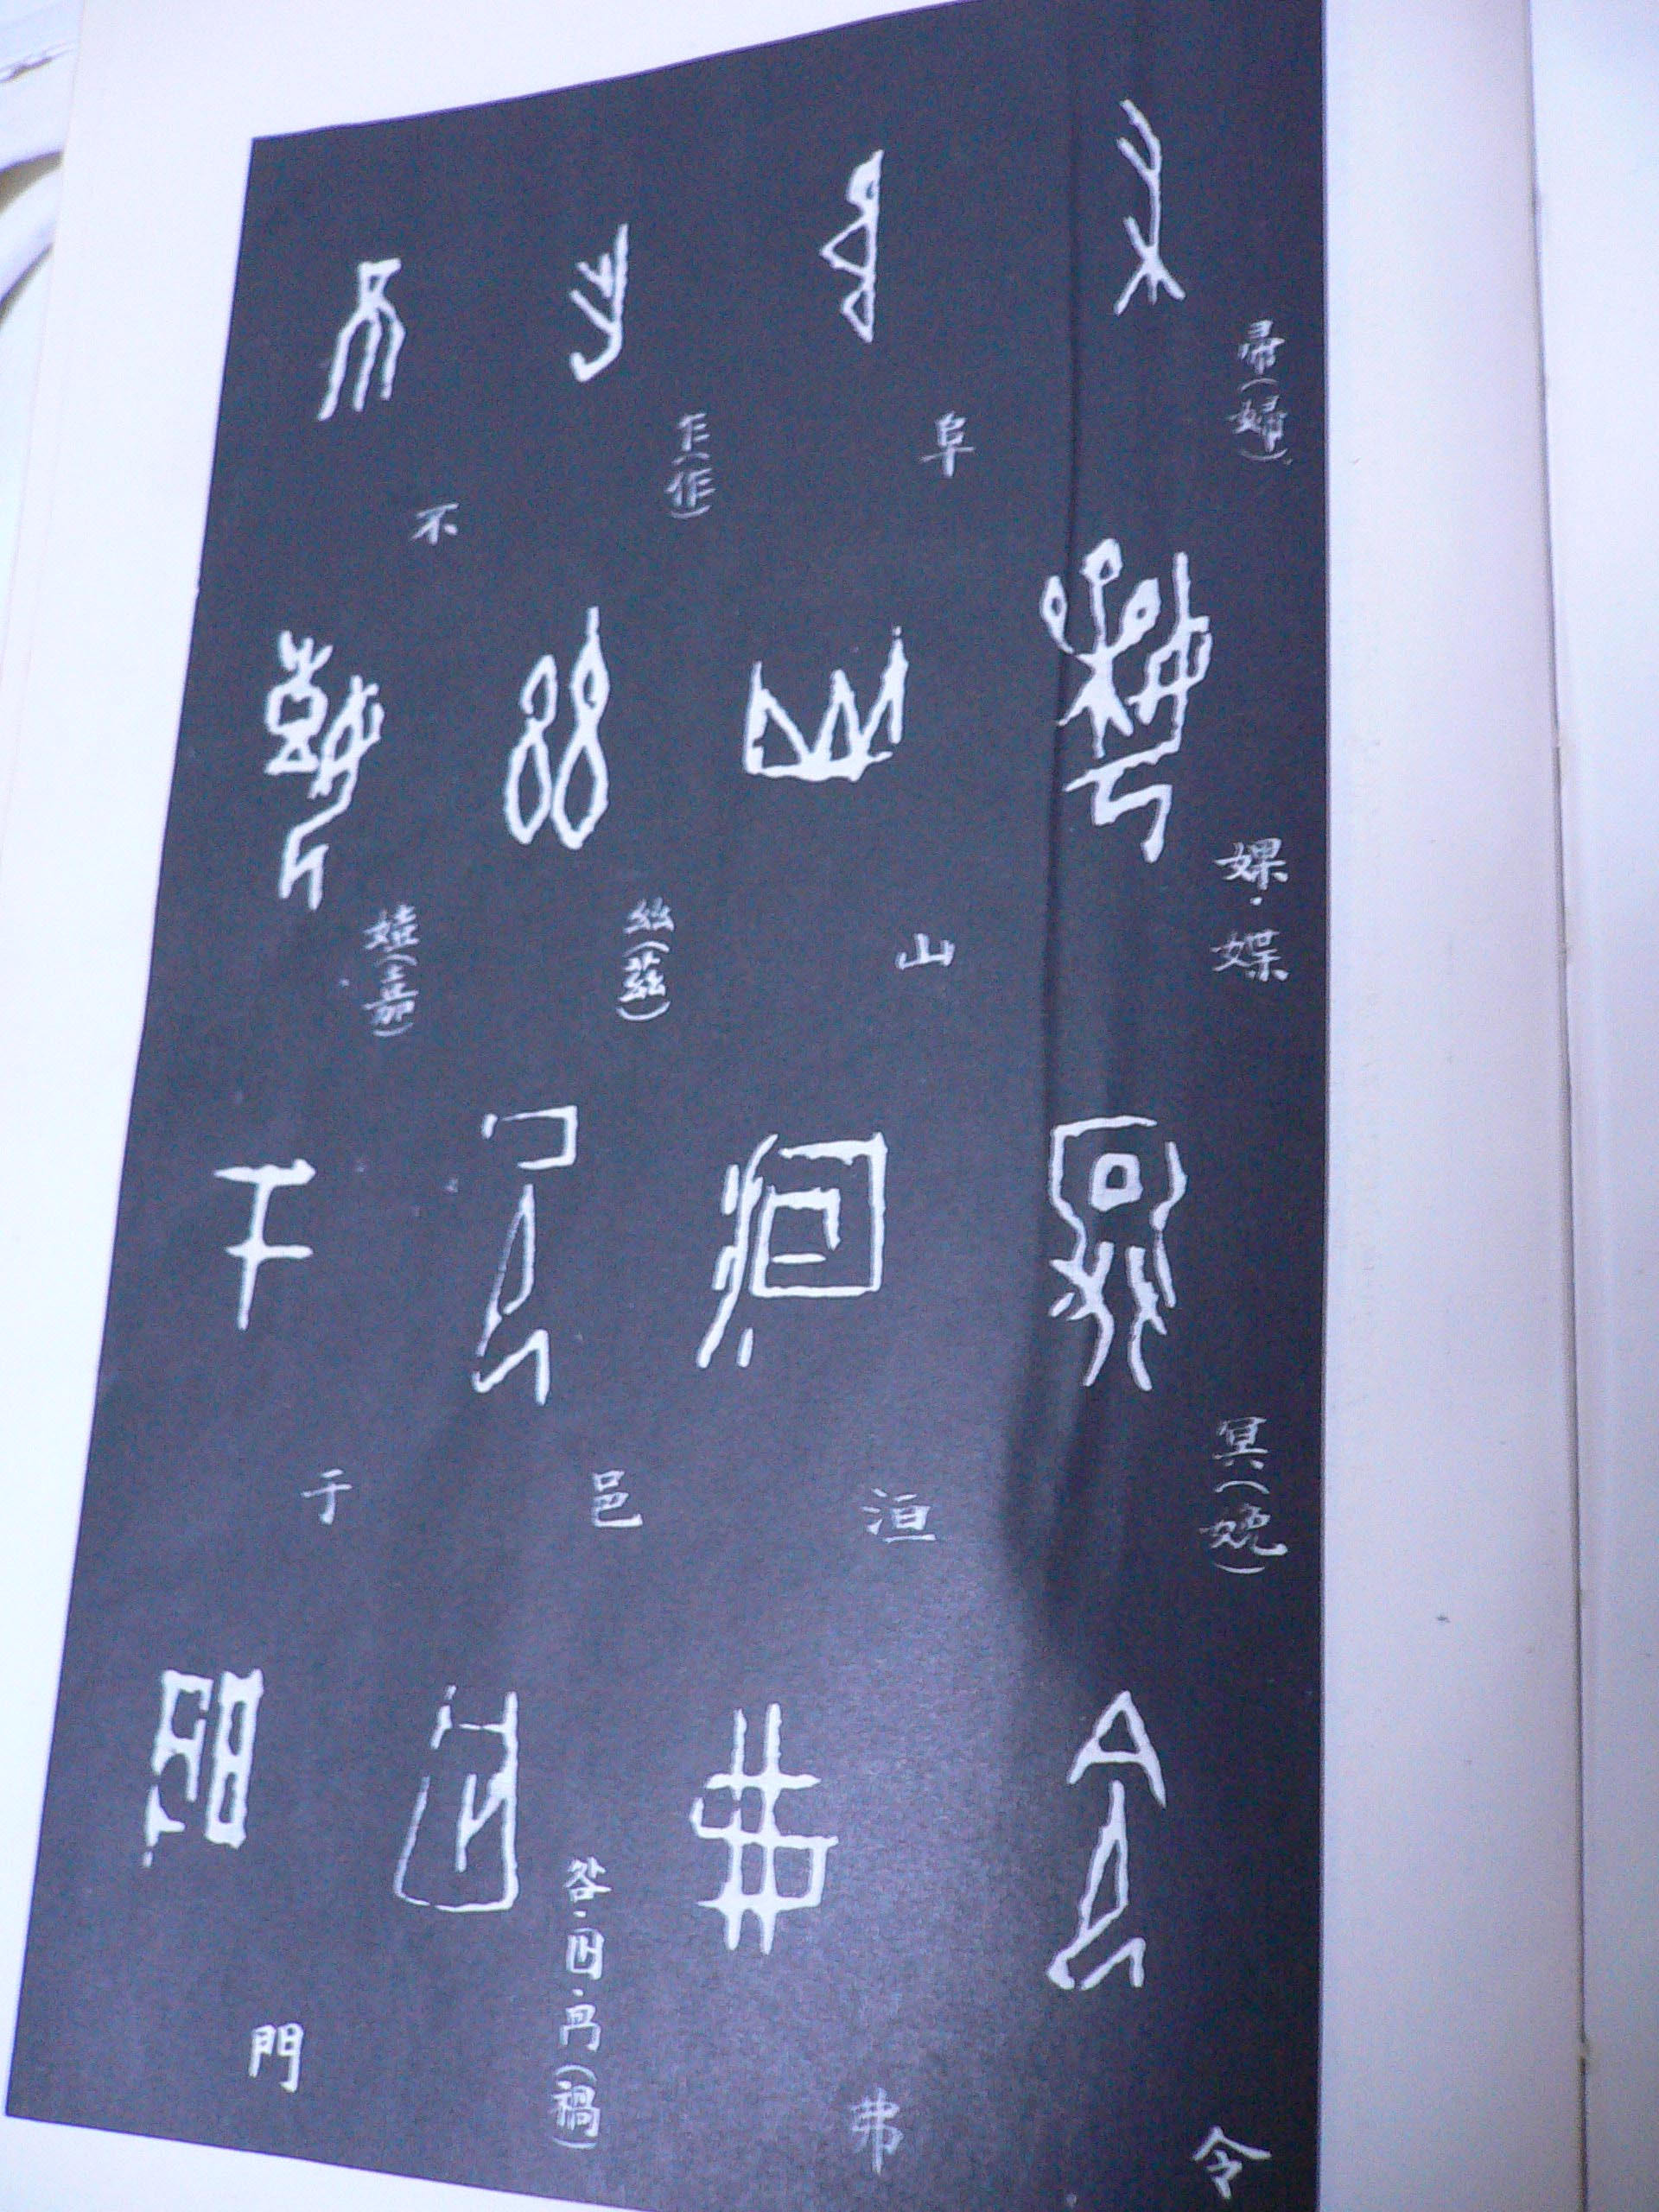 帚(婦)
婐·媟
冥(娩)
令
阜
山
洹
弗
乍(作)
丝(茲)
邑
咎·𡆥·冎(禍)
不
嬄(嘉)
于
門